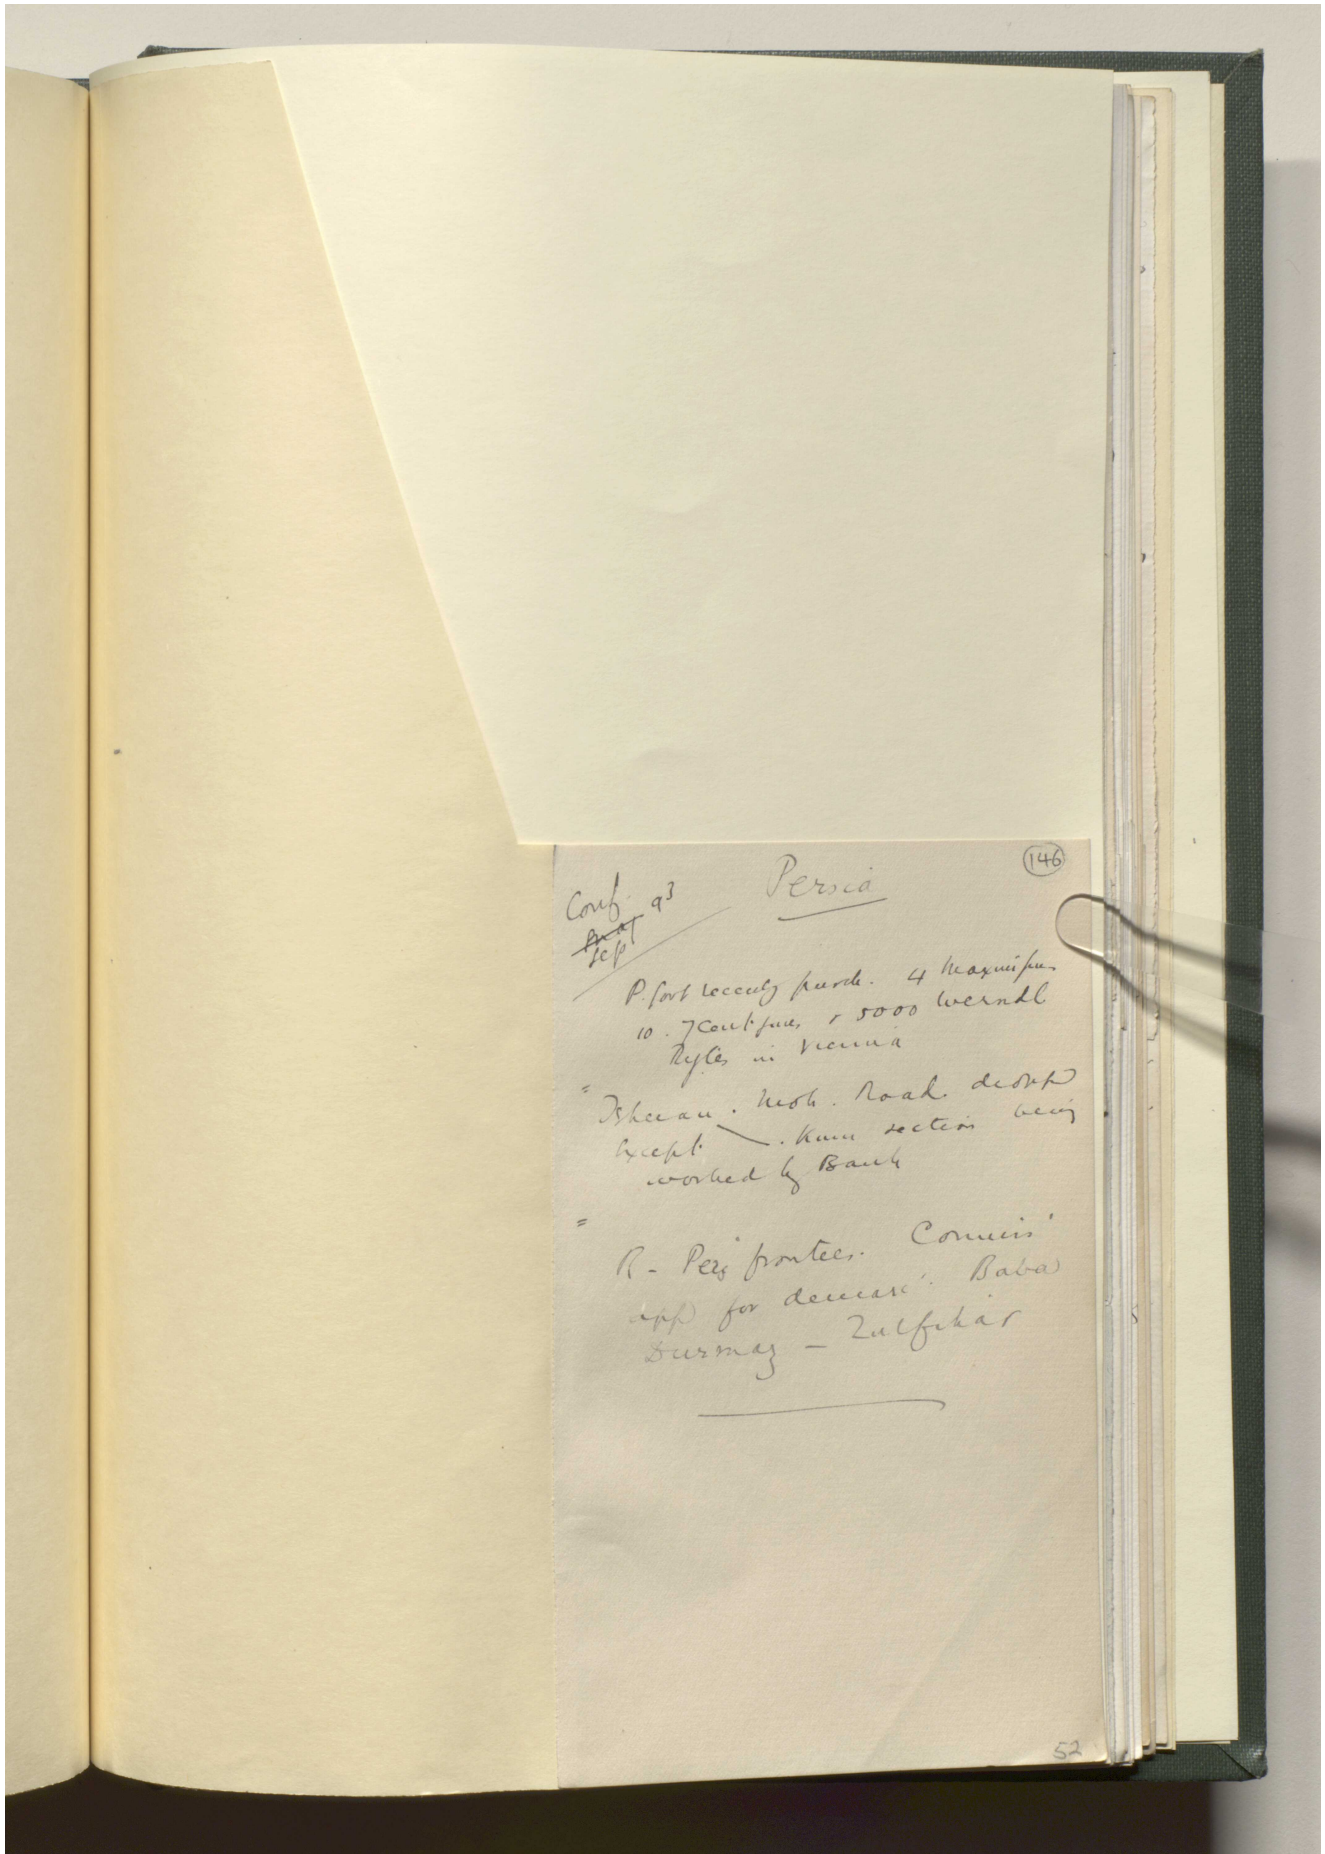 146
Persia
Conf. 93
Sep
P. Govt recently purch. 4 Maxim guns
10. 7 Cent guns & 5000 Werndl
Rifles in Vienna
" Teheran. Moh. Road. dropped
except . Kum section being
worked by Bank
"
R - Pers frontier. Commis
app for demarc. Baba
Durmaz - Zulfikar
52